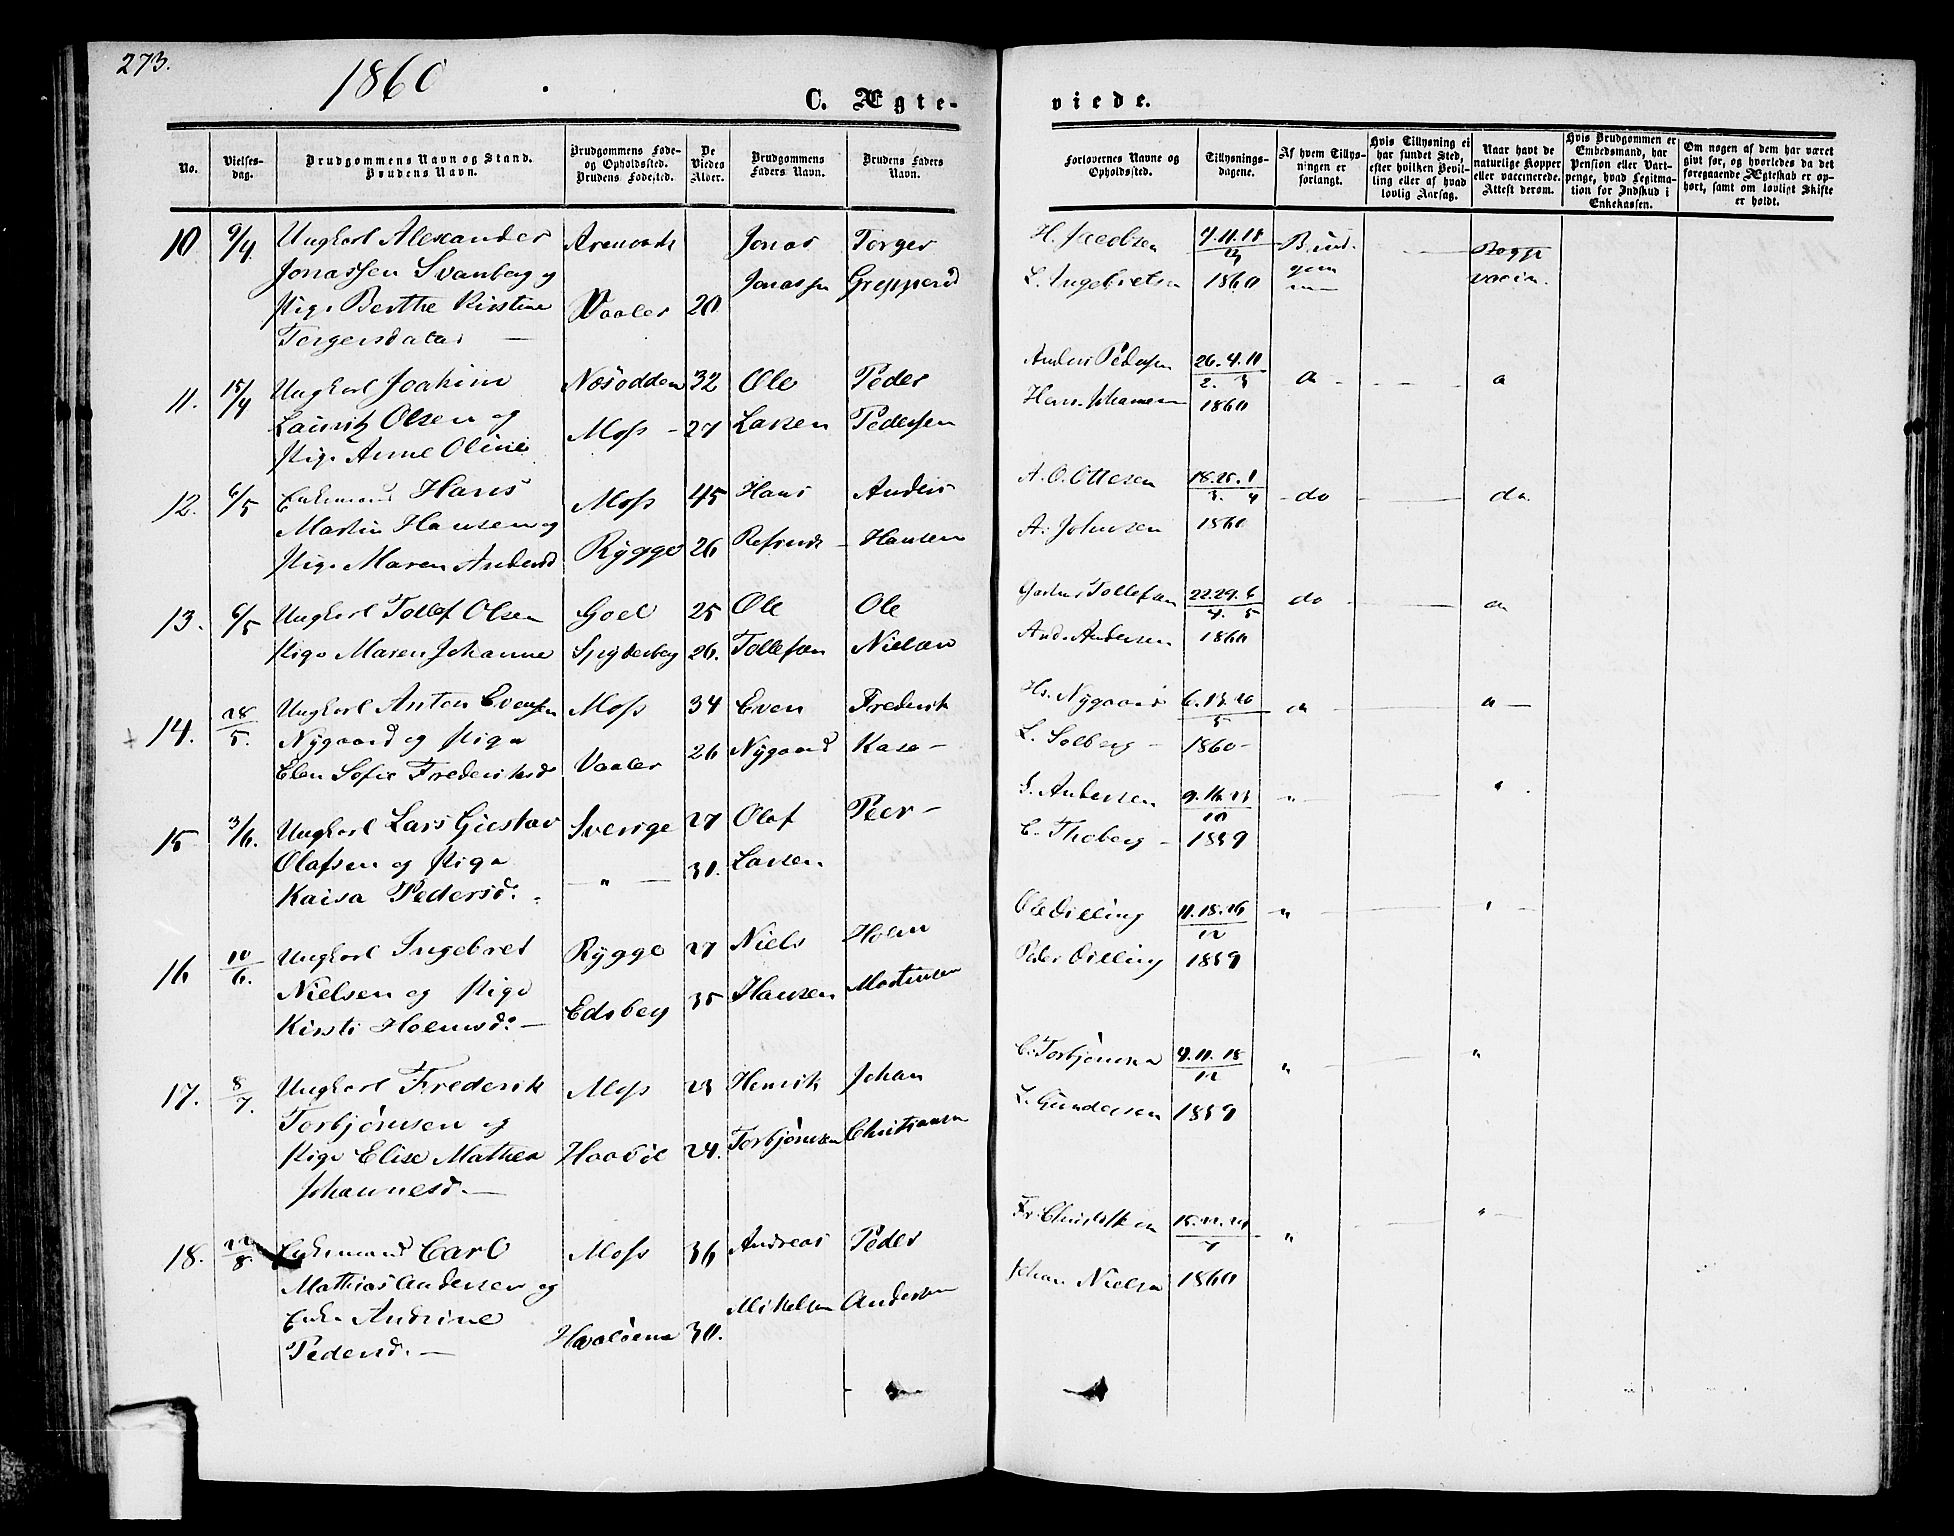 273.
1860
C. Ægte-
viede.
No.
Vielses-
dag.
Brudgommens Navn og Stand.
Brudens Navn.
Brudgommens Føde-
og Opholdssted.
Brudens Fødested.
De
Viedes
Alder.
Brudgommens
Faders Navn.
Brudens Faders
Navn.
Forlovernes Navne og
Opholdssted.
Tillysnings-
dagene.
Af hvem Tillys-
ningen er
forlangt.
Hvis Tillysning ei
har fundet Sted,
efter hvilken Bevil-
ling eller af hvad
lovlig Aarsag.
Naar havt de
naturlige Kopper
eller vaccinerede.
Attest derom.
Hvis Brudgommen er
Embedsmand, har
Pension eller Vart-
penge, hvad Legitima-
tion for Indskud i
Enkekassen.
Om nogen af dem har været
gift før, og hvorledes da det
foregaaende Ægteskab er op-
hørt, samt om lovligt Skifte
er holdt.
10 9/4 Ungkarl Alexander Jonas Torger H. Jacobsen 4.11.18
Jonassen Svanberg og Jonassen Grepperud L. Ingebretsen 1860 vaccin.
Pige Berthe Kirstine Vaaler 20
Torgersdatter
11. 15/4 Ungkarl Joakim Nesodden 32 Ole Peder Anders Pedersen 26.4.11
Lauritz Olsen og Moss 27 Larsen Pedersen Hans Johannesen 1860
Pige Anne Oline
12. 6/5 Enkemand Hans Moss 45 Hans Anders A. O. Ottesen 18.25.1 do do
Martin Hansen og Rygge 26 Hansen A. Johnsen 1860
Pige Maren Andersd
13. 6/5 Ungkarl Tollef Olsen Goel 25 Ole Ole Tollefsen 22.29.6 do
Pige Maren Johanne Spydeberg 26. Tollefsen Nielsen And. Andersen 1860
14. 28/5. Ungkarl Anton Evensen Moss 34 Even Frederik Hs. Nygaard 6.13.20
Nygaard og Pige Vaaler 26 Nygaard Kase L. Solberg 1860
Elen Sofie Frederiksd
15 3/6. Ungkarl Lars Gustav Sverige 27 Olaf Peer S. Andersen 9.16.23
Olafsen og Pige " 30. Larsen C. Thoberg 1859
Kaisa Pedersd.
16 10/6. Ungkarl Ingebret Rygge 27 Niels Holm Ole Dilling 11.18.26
Nielsen og Pige Edsberg 35 Hansen Mortensen Peder Dilling 1859
Kirsti Holmsd.
17. 8/7. Ungkarl Frederik Moss 23 Henrik Johan C. Torbjörnsen 4.11.18
Torbjørnsen og Haabøl 24. Torbjørnsen Christiansen L. Gundersen 1859
Pige Elise Mathea
Johannesd.
18. 22/8. Enkemand Carl Moss 36 Andreas Peder Fr. Christensen
Mathias Andersen og Mikelsen Andersen Johan Nielsen 1860
Enke Andrine Hvaløerne 30.
Pedersd.